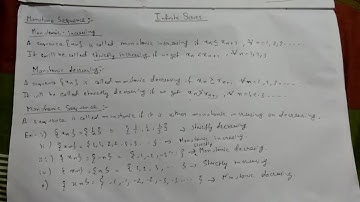 Infinite Series
Monotonic Sequence:-
Monotonic Increasing
A sequence {xn} is called monotonic increasing if xn ≤ xn+1, ∀ n=1,2,3,......
It will be called strictly increasing if we get xn < xn+1, ∀ n=1,2,3......
Monotonic decreasing:-
A sequence {xn} is called monotonic decreasing if xn ≥ xn+1, ∀ n=1,2,3......
It will be called strictly decreasing if we get xn > xn+1, ∀ n=1,2,3.....
Monotonic Sequence:-
A sequence is called monotonic if it is either monotonic increasing or decreasing.
Ex:- i) {xn} = {1/n} = {1, 1/2, 1/3, 1/4 ...} → Strictly decreasing
ii) {xn} = {1, 2, 2, → Monotonic increasing
iii) {xn} = {-n} = → Monotonic decreasing
iv) {xn} = {n} = {1, 2, 3, ...} → Strictly increasing
v) {xn} = {-1, -1, -2, -2, -3, -3 ...} → Monotonic decreasing